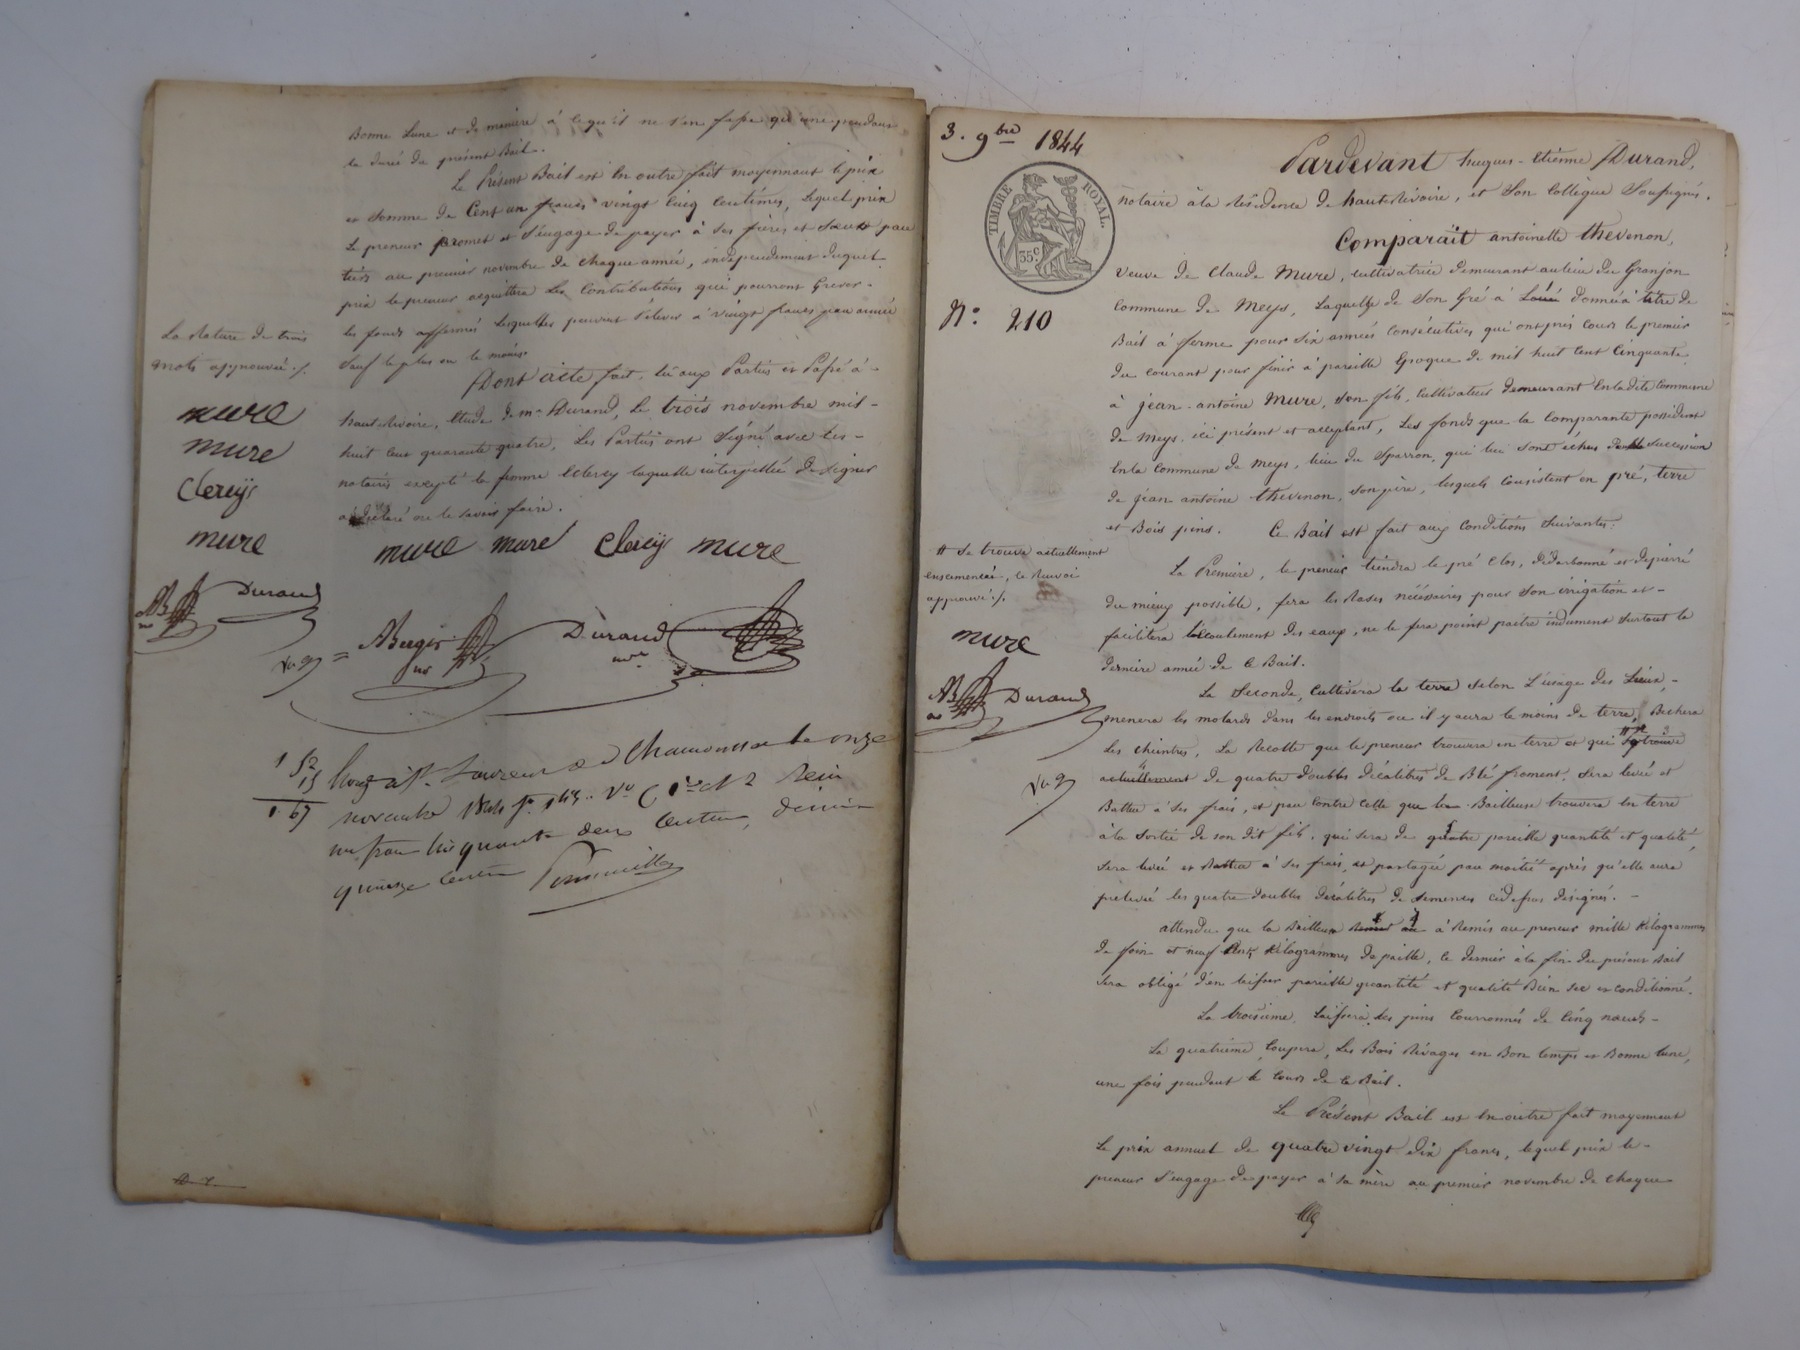 Bonne Lune et de manière à ce qu'il ne s'en fasse qu'une pendant
la durée du présent Bail.
Le Présent Bail est En outre fait moyennant le prix
et Somme de Cent un francs vingt Cinq Centimes, Lequel prix
Le preneur promet et s'engage de payer à ses frères et Sœur par
tiers au premier novembre de chaque année, indépendament duquel
prix le preneur acquittera Les Contributions qui pourront Grever
les fonds affermés lesquelles peuvent s'élever à vingt francs par année
Sauf le plus ou le moins.
Dont acte fait, lu aux Parties et Passé à
haut-Rivoire, Etude de me Durand, Le trois novembre mil-
huit Cent quarante quatre, Les Parties ont Signé avec les-
notaires excepté la femme Clercy laquelle interpellée de Signer
a déclaré ne le Savoir faire.
La Rature de trois
mots approuvée ./.
mure
mure
Clercys
mure
mure mure Clercys mure
AB Durand
ABerger Durand
1 52
15
1 67
à St. Laurent de Chamousset le onze
novembre 1844 fo 143 Vo C 1re et 2 Reçu
un franc Cinquante deux Centimes, décime
quinze Centimes
3. 9bre 1844
TIMBRE ROYAL.
35c
No. 210
Pardevant hugues-Etienne Durand,
notaire à la Résidence de haut-Rivoire, et Son Collègue Soussignés.
Comparait antoinette thevenon,
Veuve de Claude Mure, Cultivatrice demeurant au lieu du Granjon
Commune de Meys, Laquelle de Son Gré à Loué donné à titre de
Bail à ferme pour Six années Consécutives qui ont pris Cours le premier
du courant pour finir à pareille Epoque de mil huit Cent Cinquante
à jean-antoine Mure, Son fils, Cultivateur demeurant En la dite Commune
de Meys, ici présent et acceptant, Les fonds que la Comparante possède
En la Commune de Meys, lieu du Sparron, qui lui Sont échus Succession
de jean antoine thevenon, son père, lesquels Consistent en pré, terre
et Bois pins. Ce Bail est fait aux Conditions Suivantes:
La Première, le preneur tiendra le pré Clos, et depierré
du mieux possible, fera les Rases nécéssaires pour Son irrigation et-
facilitera l'écoulement des eaux, ne le fera point paitre indument Surtout la
derniere année de Ce Bail.
La Seconde, Cultivera la terre Selon L'usage des Lieux,-
menera les molards dans les endroits ou il y aura le moins de terre, Bechera
Les Cheintres, La Récolte que le preneur trouvera en terre et qui # se trouve
actuellement de quatre doubles décalitres de Blé froment, Sera levée et
Battue à Ses frais, et par Contre Celle que la Bailleuse trouvera En terre
à la Sortie de son dit fils, qui Sera de quatre pareille quantité et qualité,
Sera levée et Battue à Ses frais, et partagée par moitié après qu'elle aura
prelevé les quatre doubles décalitres de Semences Cidessus désignés. -
attendu que la Bailleuse à Remis au preneur mille Kilogrammes
de foin et neuf Cents Kilogrammes de paille, Ce dernier à la fin du présent Bail
Sera obligé d'en laisser pareille quantité et qualité Bien Sec et Conditionné.
La troisième, Laissera les pins Couronnés de Cinq nœuds-
La quatrième, Coupera, Les Bois Rivages en Bon temps et Bonne Lune,
une fois pendant le Cours de Ce Bail.
Le Présent Bail est En outre fait moyennant
Le prix annuel de quatre vingt dix francs, lequel prix le-
preneur s'engage de payer à Sa mère au premier novembre de Chaque
# Se trouve actuellement
ensemencée, Ce Renvoi
approuvé ./.
mure
AB Durand